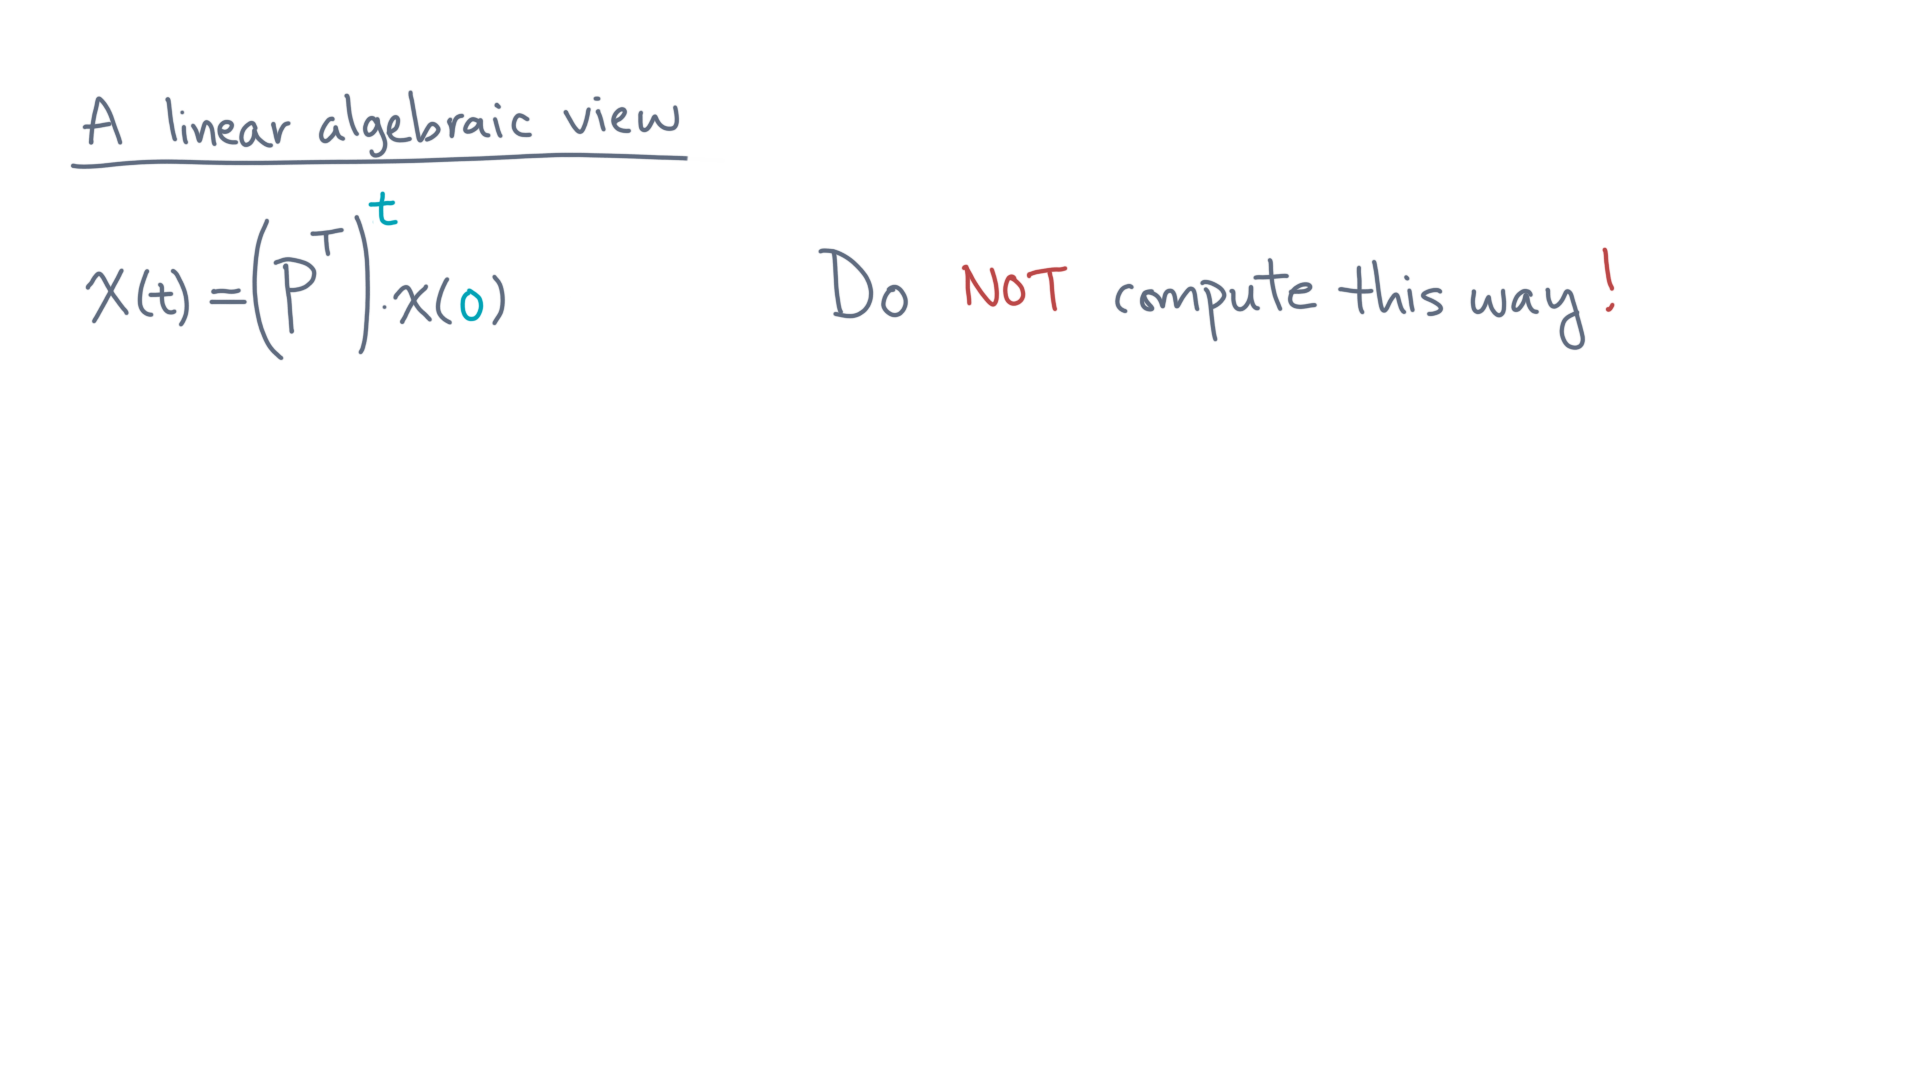 A linear algebraic view
x(t) = (P^T)^t · x(0)
Do NOT compute this way!